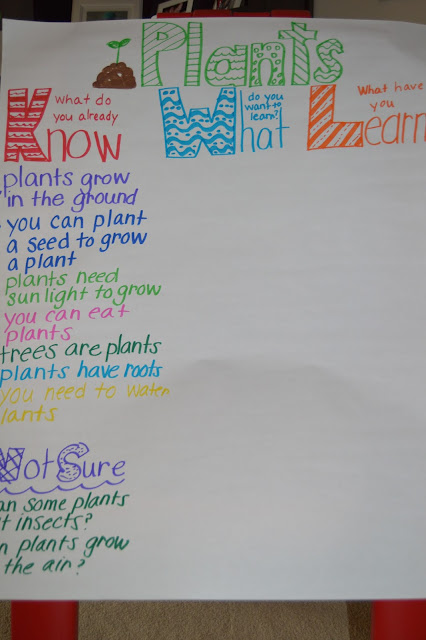 Plants
What do
you already
Know
do you
want to
learn?
What
What have
you
Learn
plants grow
in the ground
you can plant
a seed to grow
a plant
plants need
sunlight to grow
you can eat
plants
trees are plants
plants have roots
you need to water
lants
Not Sure
an some plants
t insects?
n plants grow
the air?